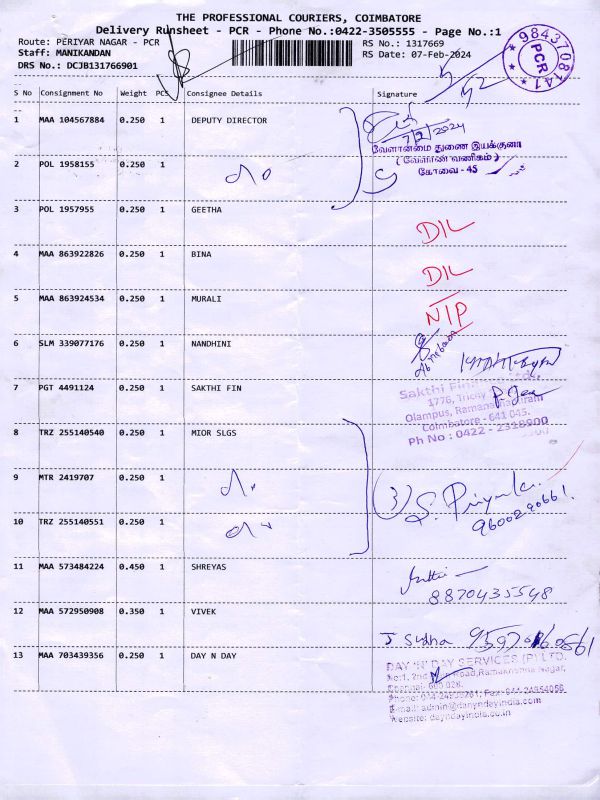 THE PROFESSIONAL COURIERS, COIMBATORE
Delivery Runsheet - PCR - Phone No.:0422-3505555 - Page No.:1
Route: PERIYAR NAGAR - PCR
RS No.: 1317669
Staff: MANIKANDAN
RS Date: 07-Feb-2024
DRS No.: DCJB131766901
9843708141
PCR
S No Consignment No Weight PCS Consignee Details Signature
1 MAA 104567884 0.250 1 DEPUTY DIRECTOR
7/2/2024
வேளாண்மை துணை இயக்குனர்
(வேளாண் வணிகம்)
கோவை - 45
2 POL 1958155 0.250 1
3 POL 1957955 0.250 1 GEETHA
D/L
4 MAA 863922826 0.250 1 BINA
D/L
5 MAA 863924534 0.250 1 MURALI
N/P
6 SLM 339077176 0.250 1 NANDHINI
7 PGT 4491124 0.250 1 SAKTHI FIN
Sakthi
1776, Trichy
Olampus, Ramanathapuram
Coimbatore - 641 045.
Ph No : 0422 - 2318900
8 TRZ 255140540 0.250 1 MIOR SLGS
9 MTR 2419707 0.250 1
(3) S. Priyanka.
9600290661.
10 TRZ 255140551 0.250 1
11 MAA 573484224 0.450 1 SHREYAS
8870435548
12 MAA 572950908 0.350 1 VIVEK
J Sudha
13 MAA 703439356 0.250 1 DAY N DAY
DAY 'N' DAY SERVICES (P) LTD.
No:1, 2nd Main Road, Ramakrishna Nagar,
Chennai- 600 028.
E-mail: admin@daynydayindia.com
Website: dayndayindia.co.in